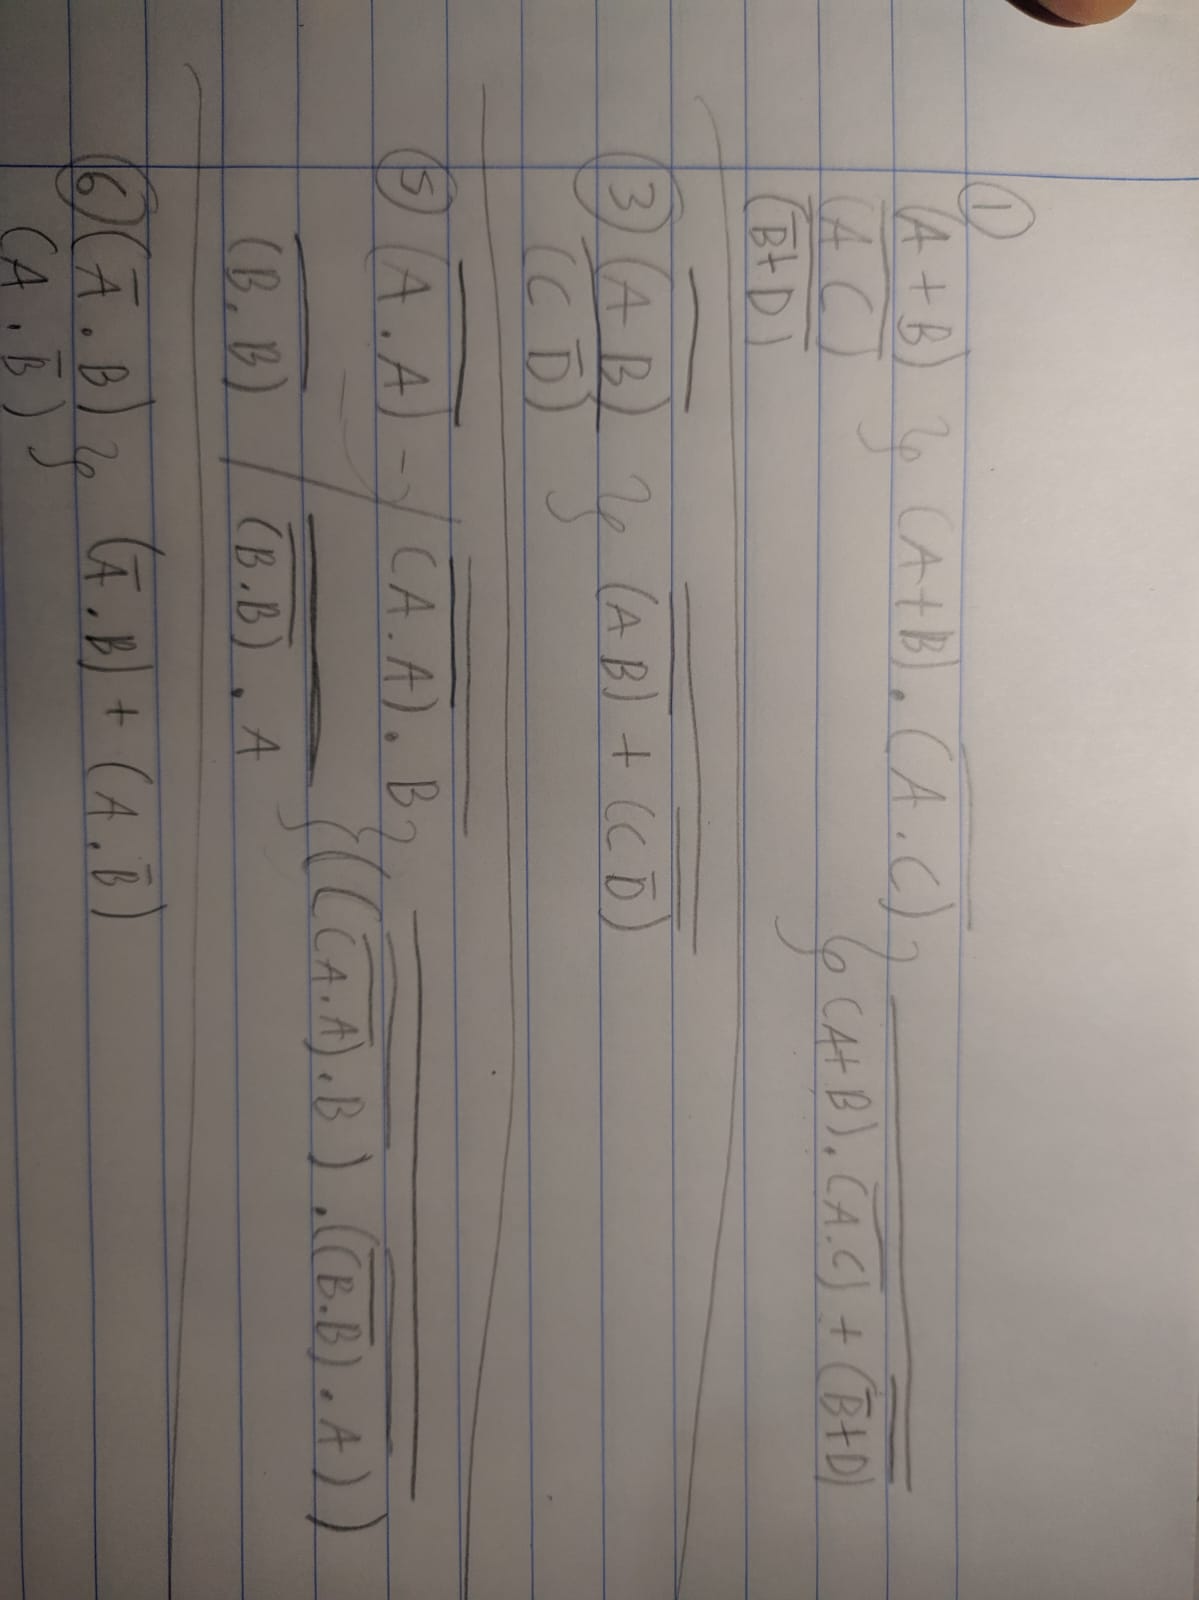 ①
(A+B) } (A+B).(A̅.̅C̅)
(A̅ ̅C̅) } (A+B).(A̅.̅C̅)+(B̅+D)
(B̅+D)
③ (A B) } (A B) + (C D̅)
(C D̅)
⑤ (A.A) → (A.A).B
(B.B) / (B.B).A } ((A.A).B).((B.B).A)
⑥ (A̅.B) } (A̅.B) + (A.B̅)
(A.B̅)